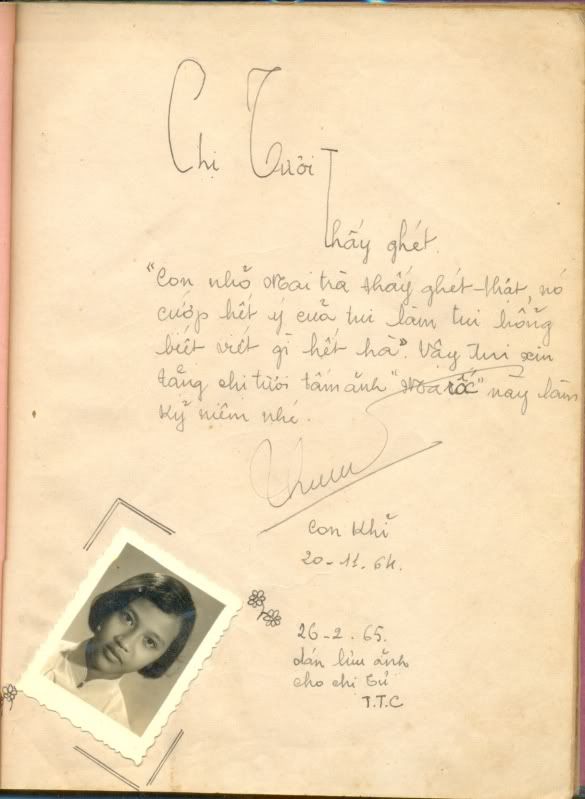 Chị Tười
Thấy ghét.
"Con nhỏ Mai trà thấy ghét thật, nó
cướp hết ý cuả tui làm tui hổng
biết viết gì hết hà". Vậy tui xin
tặng chi tười tấm ảnh "Ma rốc" này làm
kỷ niệm nhé.
Con Khỉ
20-11.64.
26-2.65.
dán lưu ảnh
cho chi Tư
T.T.C